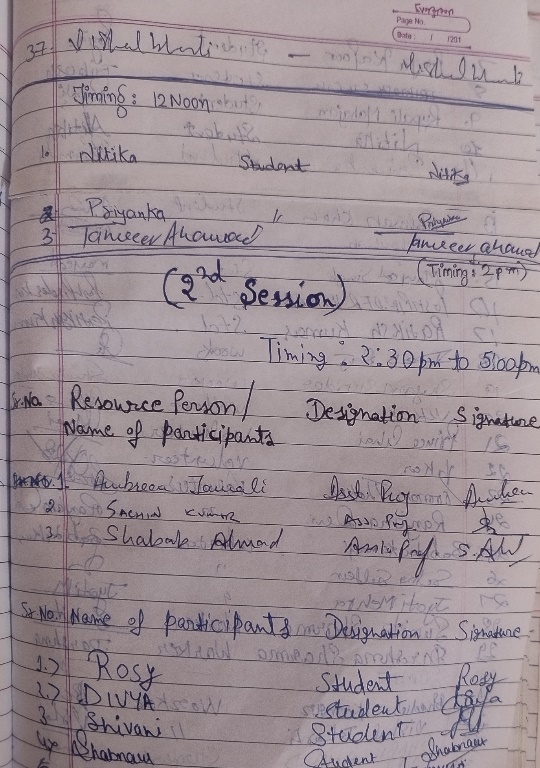 Evergreen
Page No.
Date: / /201
37. Vishal Bharti —
Timing: 12 Noon
1. Nitika Student Nitika
2 Priyanka " Priyanka
3 Tanveer Ahamad Tanveer ahamad
(Timing: 2 pm)
(2nd Session)
Timing: 2:30pm to 5:00pm
Sr.No. Resource Person/ Designation Signature
Name of participants
1. Asst Prof
2. SACHIN KUMAR Asso. Prof
3. Shabab Ahmad Asstt Prof
Sr No. Name of participants Designation Signature
1.> Rosy Student Rosy
2.> DIVYA student
3 Shivani Student
4 Shabnam Student Shabnam